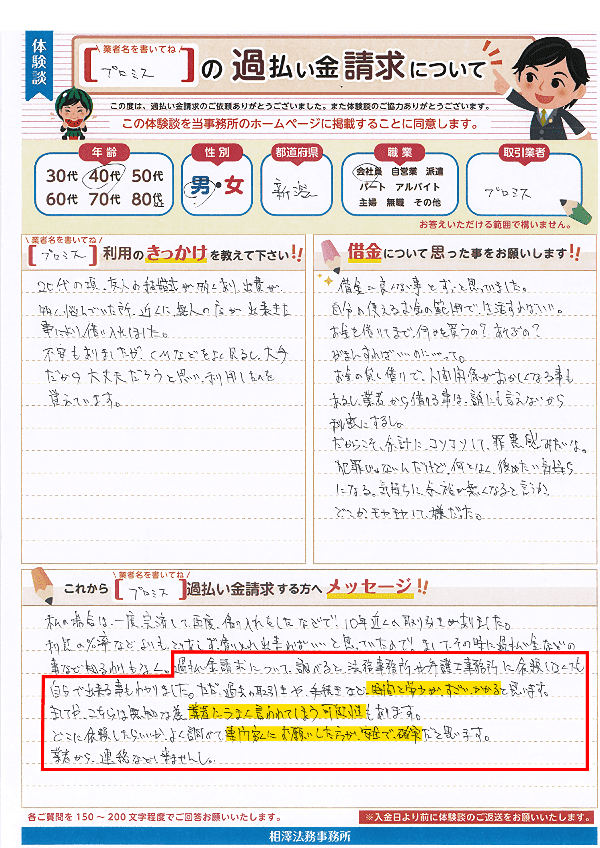 体験談
業者名を書いてね
[プロミス]の過払い金請求について
この度は、過払い金請求のご依頼ありがとうございました。また体験談のご協力ありがとうございます。
この体験談を当事務所のホームページに掲載することに同意します。
年齢
30代 40代 50代
60代 70代 80代
性別
男・女
都道府県
新潟
職業
会社員 自営業 派遣
パート アルバイト
主婦 無職 その他
取引業者
プロミス
お答えいただける範囲で構いません。
業者名を書いてね
[プロミス]利用のきっかけを教えて下さい!!
20代の頃、友人の結婚式が所々あり、出費が
多く悩んでいた所、近くに無人の店が出来きた
事により借り入れました。
不安もありましたが、CMなどをよく見るし、大手
だから大丈夫だろうと思い、利用したのを
覚えています。
借金について思った事をお願いします!!
借金は良くない事とずっと思っていました。
自分の使えるお金の範囲で、生活すればいい。
お金を借りてまで、何を買うの?あそぶの?
がまんすればいいのにって。
お金の貸し借りで、人間関係がおかしくなる事も
あるし、業者から借りる事は、誰にも言えないから
秘密にするし。
だからこそ、余計に、コソコソして、罪悪感みたいな。
犯罪じゃないんだけど、何となく、後めたい気持ち
になる。気持ちに余裕が無くなると言うか、
どこかモヤモヤして、嫌だった。
業者名を書いてね
これから[プロミス]過払い金請求する方へメッセージ!!
私の場合は、一度、完済して、再度、借り入れをしたなどで、10年近くの取り引きがありました。
利息の%率などよりも、とりあえず借り入れ出来ればいいと思っていたので、まして、その時に過払い金などの
事など知るわけもなく。過払い金請求について、調べると、法務事務所や弁護士事務所に依頼しなくても
自分で出来る事もわかりました。ただ、過去の取引きや、手続きなど、時間と労力が、すごいかかると思います。
ましてや、こちらは無知な為業者にうまく言われてしまう可能性もあります。
どこに依頼したらいいか、よく調べて専門家にお願いしたほうが、安全で、確実だと思います。
業者から、連絡など来ませんし。
各ご質問を150~200文字程度でご回答お願いいたします。
※入金日より前に体験談のご返送をお願いいたします。
相澤法務事務所